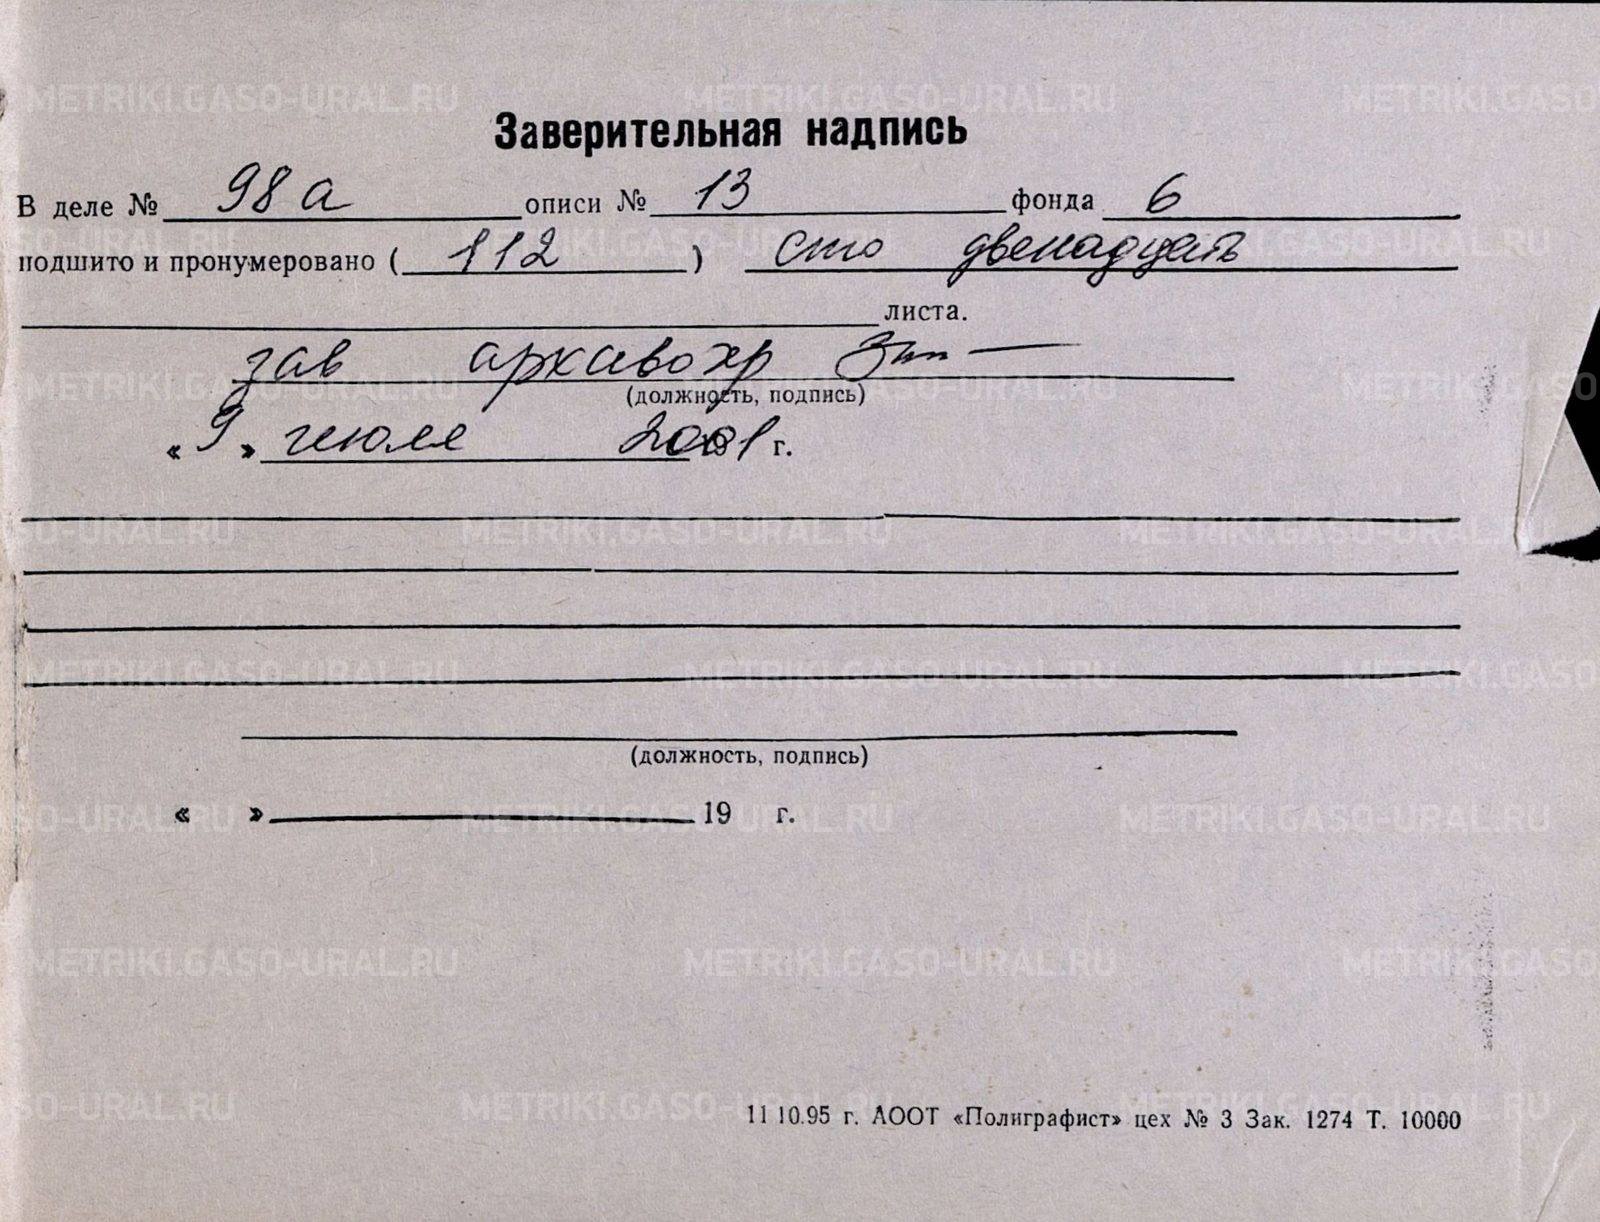 Заверительная надпись
В деле № 98 а описи № 13 фонда 6
подшито и пронумеровано ( 112 ) сто двенадцать
листа.
зав архивохр
(должность, подпись)
« 9 » июля 2001 г.
(должность, подпись)
« » 19 г.
11 10.95 г. АООТ «Полиграфист» цех № 3 Зак. 1274 Т. 10000
METRIKI.GASO-URAL.RU